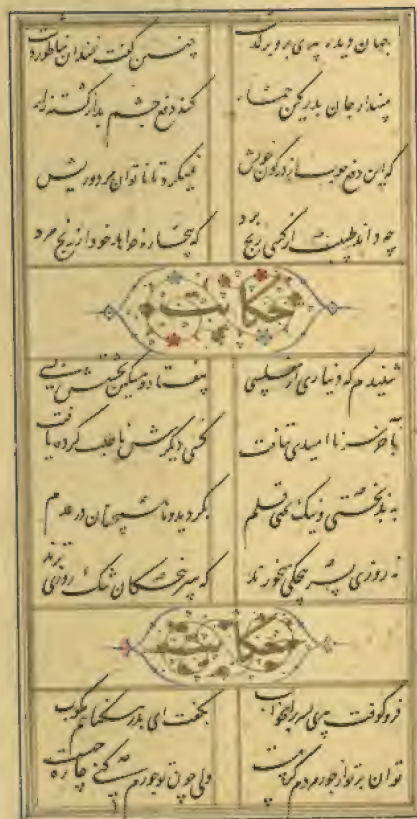 جهان دیده پیری برو برگذشت چنین گفت خندان بناطور دشت
مپندار جان پدر کین حمار کند دفع چشم بد از کشتزار
که این دفع چوب از در کون خویش نمیکرد تا ناتوان مرد و ریش
چه داند طبیب از کسی رنج برد که بیچاره خواهد خود از رنج مرد
حکایت
شنیدم که دیناری از مفلسی بیفتاد و مسکین بجستش بسی
بآخر سر ناامیدی بتافت کسی دیگرش ناطلب کرده یافت
به بدبختی و نیک بختی قلم بگردید و ما همچنان در عدم
نه روزی بسر پنجگی میخورند که سرپنجگان تنگ روزی ترند
حکایت
فرو کوفت پیری پسر را بچوب بگفت ای پدر بیگناهم مکوب
توان بر تو از جور مردم گریست ولی چون تو جورم کنی چاره چیست